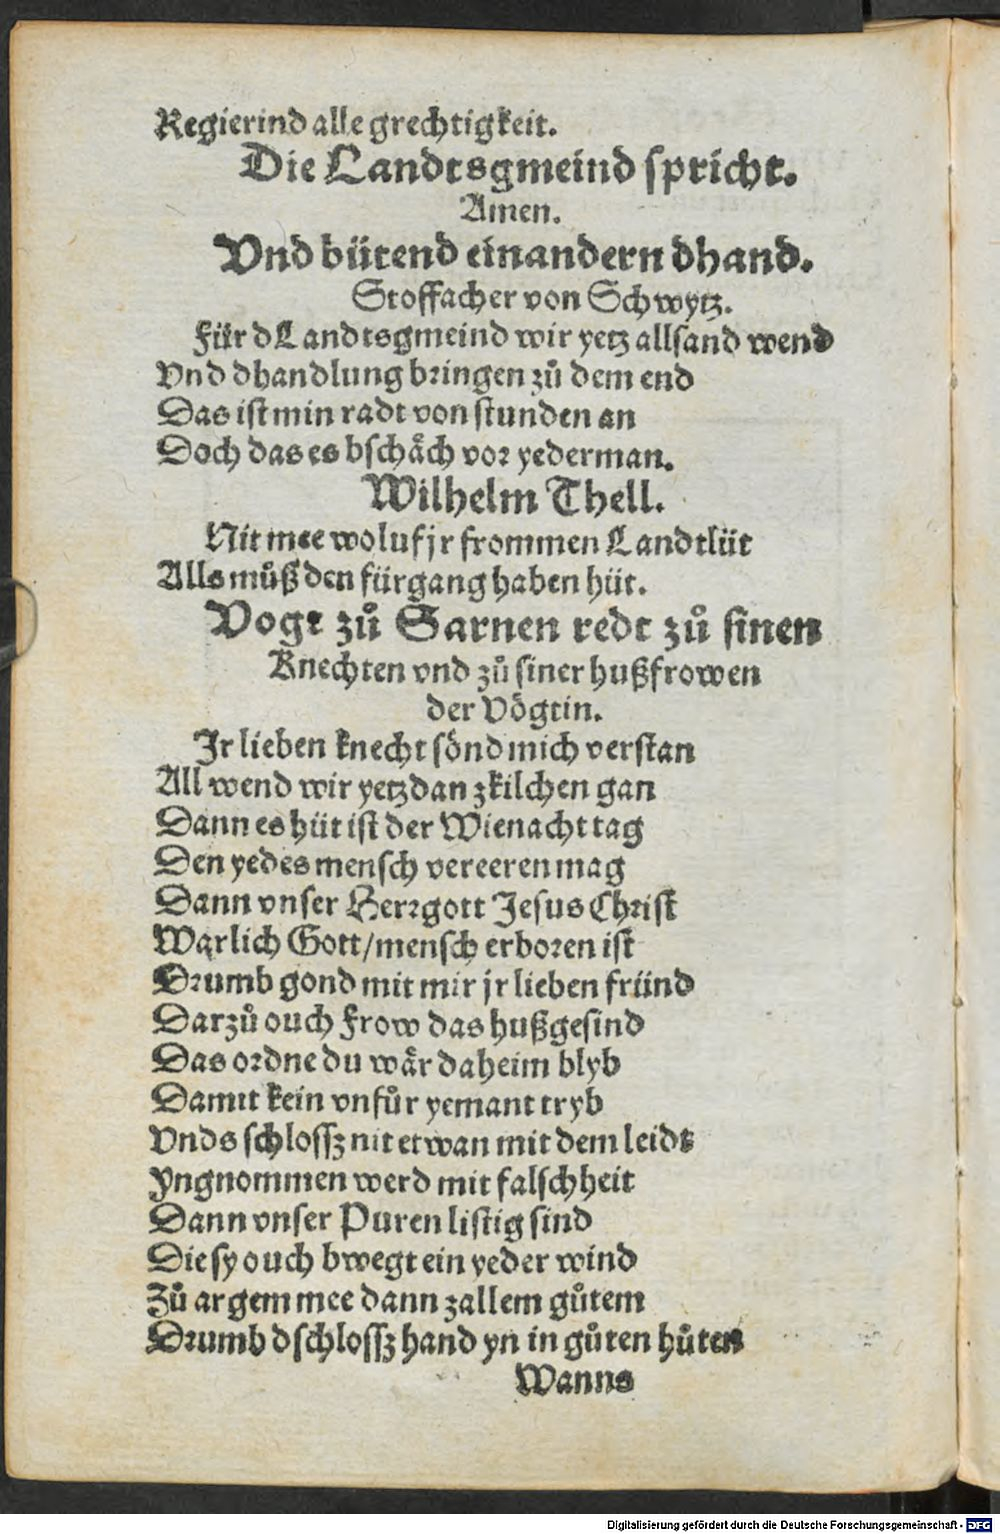 Regierind alle grechtigkeit.
Die Landtsgmeind spricht.
Amen.
Vnd bütend einandern dhand.
Stoffacher von Schwytz.
Für d Landtsgmeind wir yetz allsand wend
Vnd dhandlung bringen zů dem end
Das ist min radt von stunden an
Doch das es bschäch vor yederman.
Wilhelm Thell.
Nit mee woluf jr frommen Landtlüt
Alls můß den fürgang haben hüt.
Vogt zů Sarnen redt zů sinen
Knechten vnd zů siner hußfrowen
der Vögtin.
Jr lieben knecht sönd mich verstan
All wend wir yetzdan zkilchen gan
Dann es hüt ist der Wienacht tag
Den yedes mensch vereeren mag
Dann vnser Herrgott Jesus Christ
Warlich Gott/mensch erboren ist
Drumb gond mit mir jr lieben fründ
Darzů ouch Frow das hußgesind
Das ordne du wär daheim blyb
Damit kein vnfůr yemant tryb
Vnds schlossz nit etwan mit dem leidt
Yngnommen werd mit falschheit
Dann vnser Puren listig sind
Die sy ouch bwegt ein yeder wind
Zů argem mee dann zallem gůtem
Drumb dschlossz hand yn in gůten hůten
Wanns
Digitalisierung gefördert durch die Deutsche Forschungsgemeinschaft - DFG